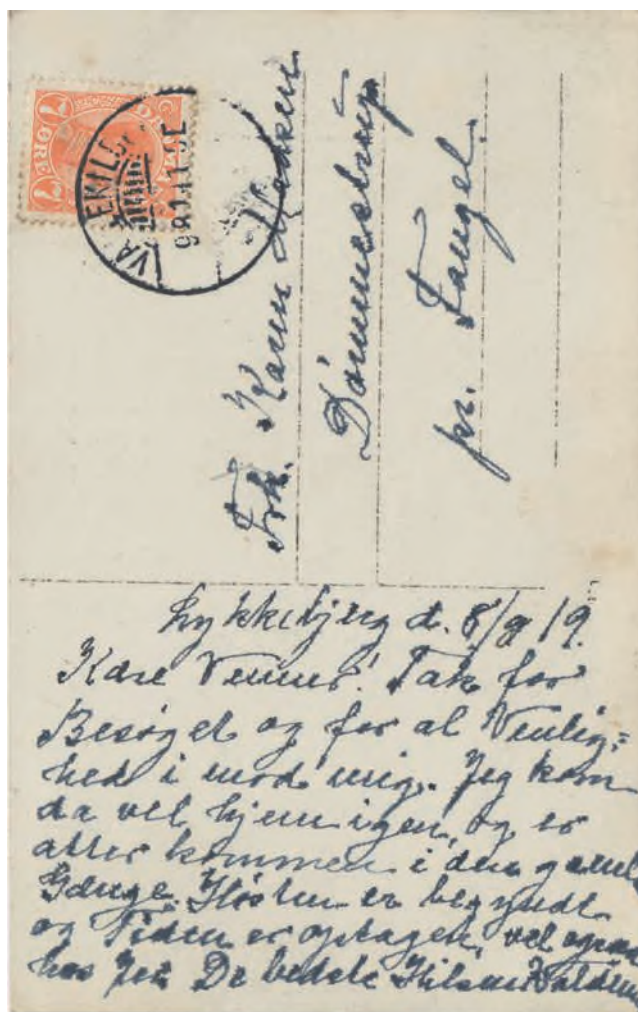 7 ØRE 7
DANMARK
Frk. Karen Madsen
Dømmestrup
pr. Tangel.
Lykkebjerg d. 8/9 19.
Kære Venner! Tak for
Besøget og for al Venlig=
hed i mod mig. Jeg kom
da vel hjem igen, og er
atter kommen i den gamle
Gænge. Høsten er begyndt
og Tiden er optagen, vel ogsaa
hos Jer. De bedste Hilsner